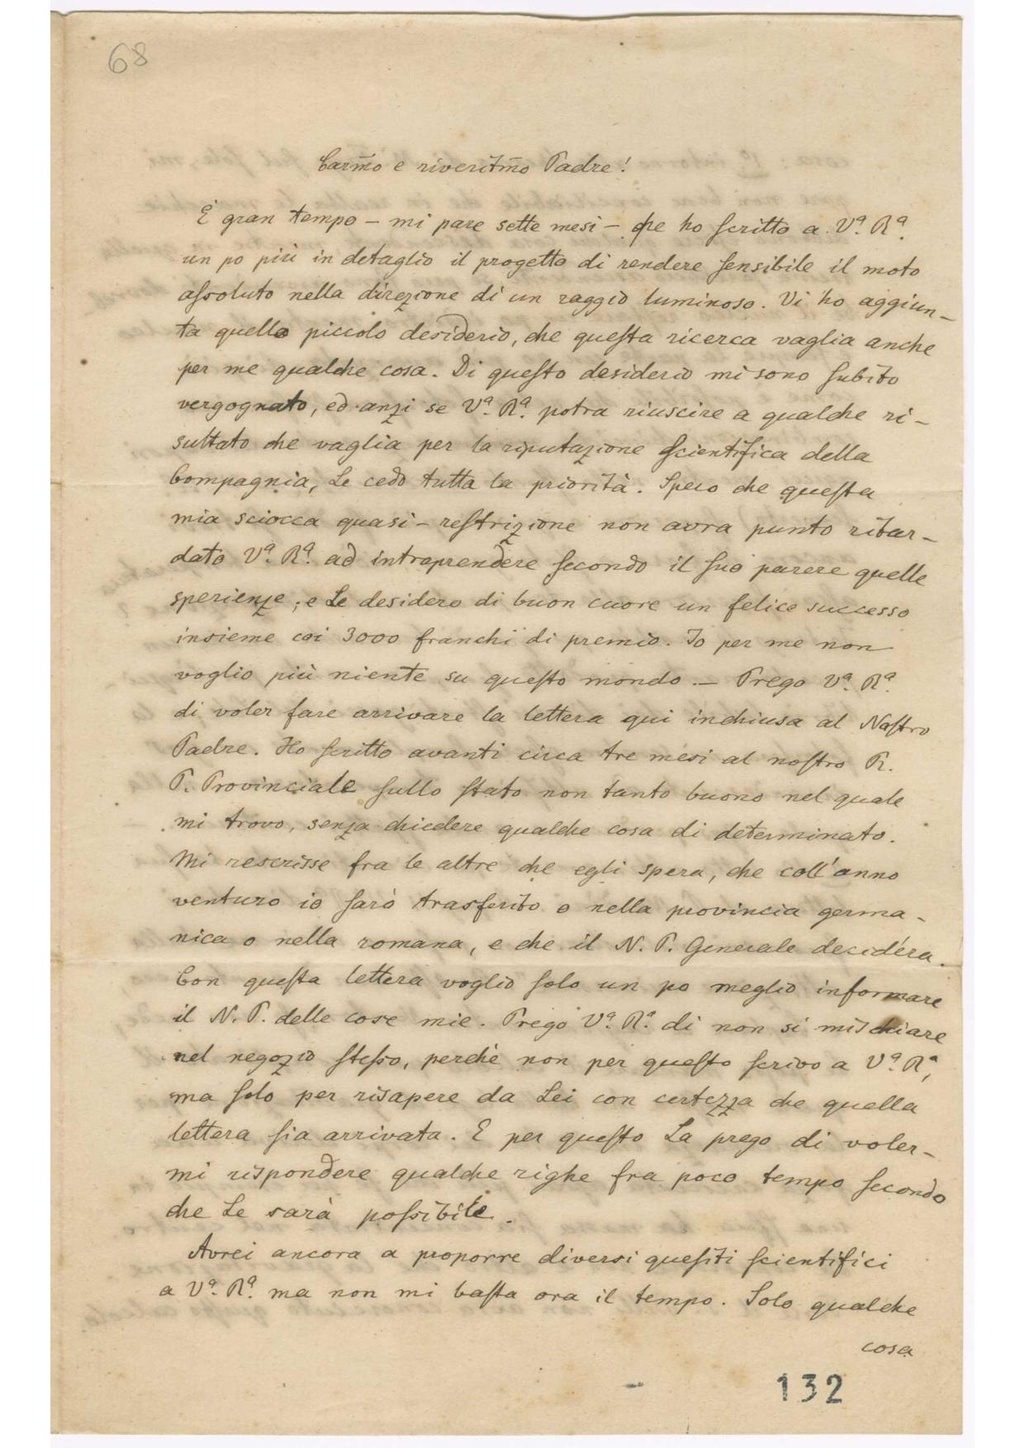 68
Carm̃o e riveritm̃o Padre!
È gran tempo – mi pare sette mesi – che ho scritto a Vª Rª
un po più in detaglio il progetto di rendere sensibile il moto
assoluto nella direzione di un raggio luminoso. Vi ho aggiun–
ta quello piccolo desiderio, che questa ricerca vaglia anche
per me qualche cosa. Di questo desiderio mi sono subito
vergognato, ed anzi se Vª Rª potra riuscire a qualche ri–
sultato che vaglia per la riputazione scientifica della
Compagnia, Le cedo tutta la priorità. Spero che questa
mia sciocca quasi–restrizione non avra punto ritar–
dato Vª Rª ad intraprendere secondo il suo parere quelle
sperienze; e Le desidero di buon cuore un felice successo
insieme coi 3000 franchi di premio. Io per me non
voglio più niente su questo mondo. — Prego Vª Rª
di voler fare arrivare la lettera qui inchiusa al Nostro
Padre. Ho scritto avanti circa tre mesi al nostro R.
P. Provinciale sullo stato non tanto buono nel quale
mi trovo, senza chiedere qualche cosa di determinato.
Mi rescrisse fra le altre che egli spera, che coll'anno
venturo io sarò trasferito o nella provincia germa–
nica o nella romana, e che il N. P. Generale deciderà.
Con questa lettera voglio solo un po meglio informare
il N. P. delle cose mie. Prego Vª Rª di non si mischiare
nel negozio stesso, perchè non per questo scrivo a Vª Rª,
ma solo per risapere da Lei con certezza che quella
lettera sia arrivata. E per questo La prego di voler–
mi rispondere qualche righe fra poco tempo secondo
che Le sarà possibile.
Avrei ancora a proporre diversi quesiti scientifici
a Vª Rª ma non mi basta ora il tempo. Solo qualche
cosa
132